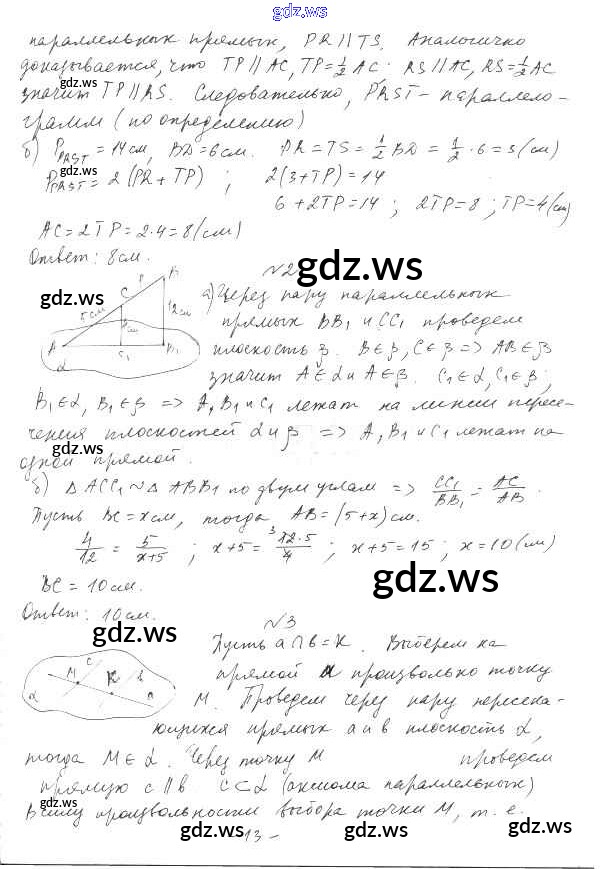 gdz.ws
параллельных прямых, PR∥TS. Аналогично
доказывается, что TP∥AC, TP=½AC. RS∥AC, RS=½AC
значит TP∥RS. Следовательно, PRST – параллело-
грамм (по определению)
б) P_PRST = 14см, BD=6см. PR=TS=½BD=½·6=3(см)
P_PRST = 2(PR+TP); 2(3+TP)=14
6+2TP=14; 2TP=8; TP=4(см)
AC=2TP=2·4=8(см)
Ответ: 8см.
№2
а) Через пару параллельных
прямых BB₁ и CC₁ проведем
плоскость β. B∈β, C∈β => AB∈β
значит A∈α и A∈β. C₁∈α, C₁∈β;
B₁∈α, B₁∈β => A, B₁ и C₁ лежат на линии пересе-
чения плоскостей α и β => A, B₁ и C₁ лежат на
одной прямой.
б) △ACC₁ ~ △ABB₁ по двум углам => CC₁/BB₁ = AC/AB.
Пусть BC=x см, тогда AB=(5+x) см.
4/12 = 5/(x+5); x+5 = 12·5/4; x+5=15; x=10(см)
BC=10см.
Ответ: 10см.
№3
Пусть a∩b=K. Выберем на
прямой a произвольно точку
M. Проведем через пару пересека-
ющихся прямых a и b плоскость α,
тогда M∈α. Через точку M проведем
прямую c∥b. c⊂α (аксиома параллельных)
В силу произвольности выбора точки M, т.е.
13 –
gdz.ws
gdz.ws
gdz.ws
gdz.ws
gdz.ws
gdz.ws
gdz.ws
gdz.ws
gdz.ws
gdz.ws